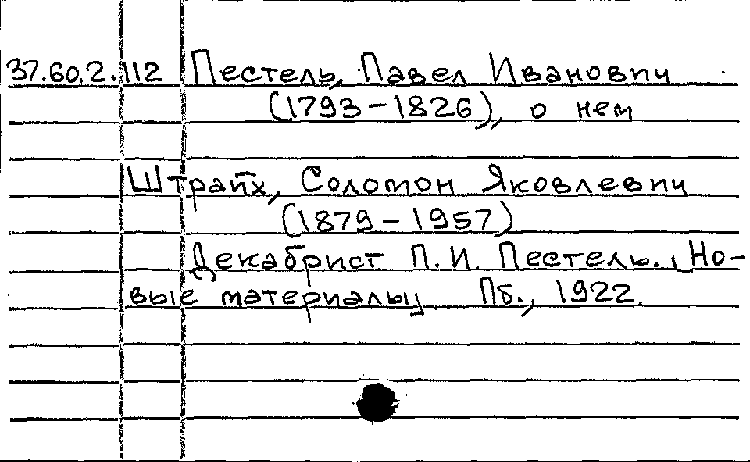 37.60.2.112 Пестель, Павел Иванович
(1793-1826), о нем
Штрайх, Соломон Яковлевич
(1879-1957)
Декабрист П.И. Пестель. Но-
вые материалы. Пб., 1922.